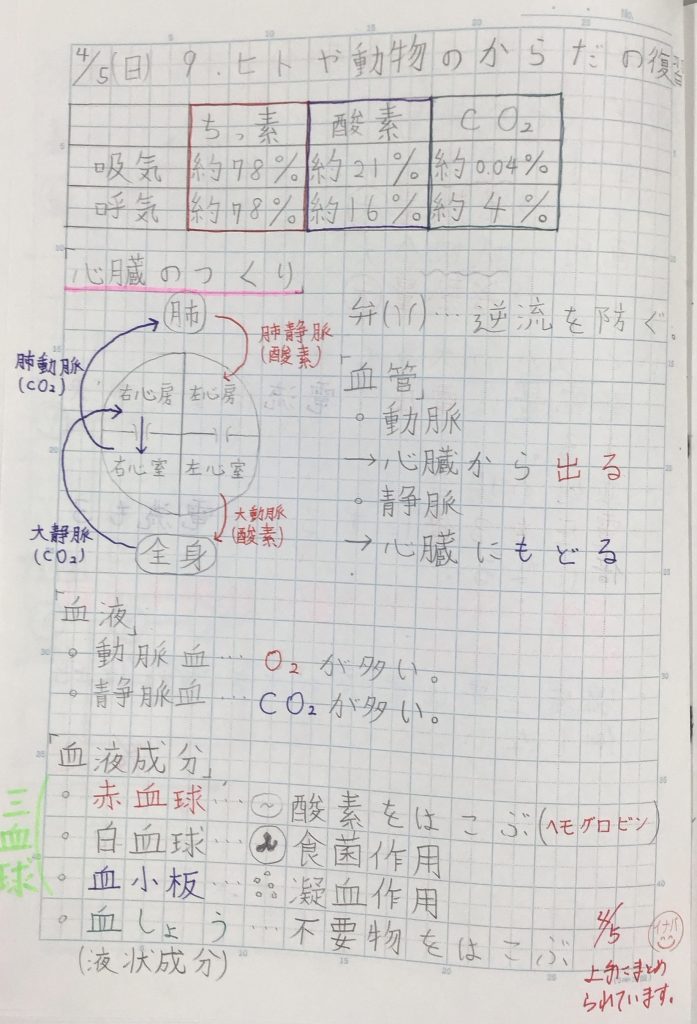 4/5(日) 9.ヒトや動物のからだの復習
ちっ素 酸素 CO₂
吸気 約78% 約21% 約0.04%
呼気 約78% 約16% 約4%
「心臓のつくり」
肺
肺静脈
(酸素)
肺動脈
(CO₂)
右心房 左心房
右心室 左心室
大動脈
(酸素)
大静脈
(CO₂)
全身
弁( )…逆流を防ぐ。
「血管」
・動脈
→心臓から出る
・静脈
→心臓にもどる
「血液」
・動脈血…O₂が多い。
・静脈血…CO₂が多い。
「血液成分」
三血球
・赤血球…酸素をはこぶ(ヘモグロビン)
・白血球…食菌作用
・血小板…凝血作用
・血しょう…不要物をはこぶ
(液状成分)
4/5 イナバ
上手にまとめ
られています。